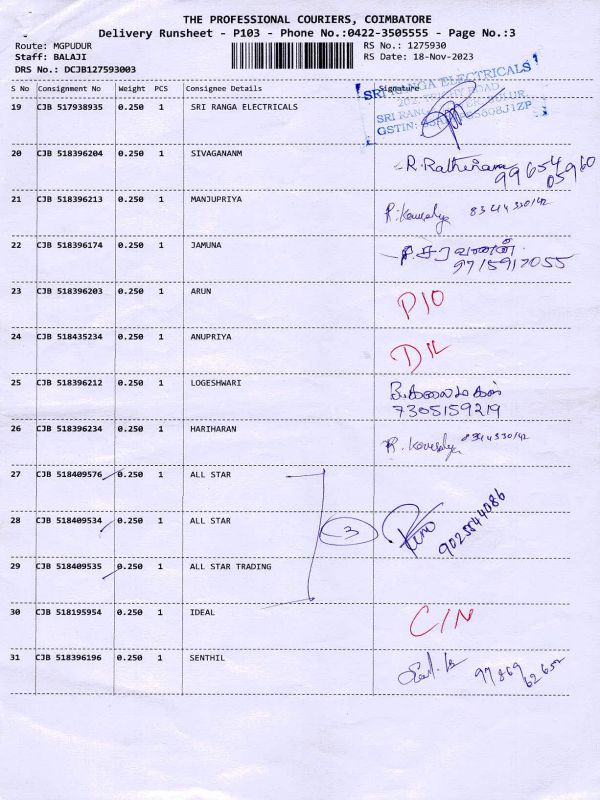 THE PROFESSIONAL COURIERS, COIMBATORE
Delivery Runsheet - P103 - Phone No.:0422-3505555 - Page No.:3
Route: MGPUDUR RS No.: 1275930
Staff: BALAJI RS Date: 18-Nov-2023
DRS No.: DCJB127593003
S No Consignment No Weight PCS Consignee Details Signature
SRI RANGA ELECTRICALS
19 CJB 517938935 0.250 1 SRI RANGA ELECTRICALS
SRI
GSTIN:
20 CJB 518396204 0.250 1 SIVAGANANM R. Rathinam
99654
05960
21 CJB 518396213 0.250 1 MANJUPRIYA R. Kowsalya 8344330142
22 CJB 518396174 0.250 1 JAMUNA P. சரவணன்
9715917055
23 CJB 518396203 0.250 1 ARUN P/O
24 CJB 518435234 0.250 1 ANUPRIYA D/L
25 CJB 518396212 0.250 1 LOGESHWARI
7305159219
26 CJB 518396234 0.250 1 HARIHARAN R. Kowsalya 8344330142
27 CJB 518409576 0.250 1 ALL STAR
28 CJB 518409534 0.250 1 ALL STAR 3 9025544086
29 CJB 518409535 0.250 1 ALL STAR TRADING
30 CJB 518195954 0.250 1 IDEAL C/N
31 CJB 518396196 0.250 1 SENTHIL 97869
62652